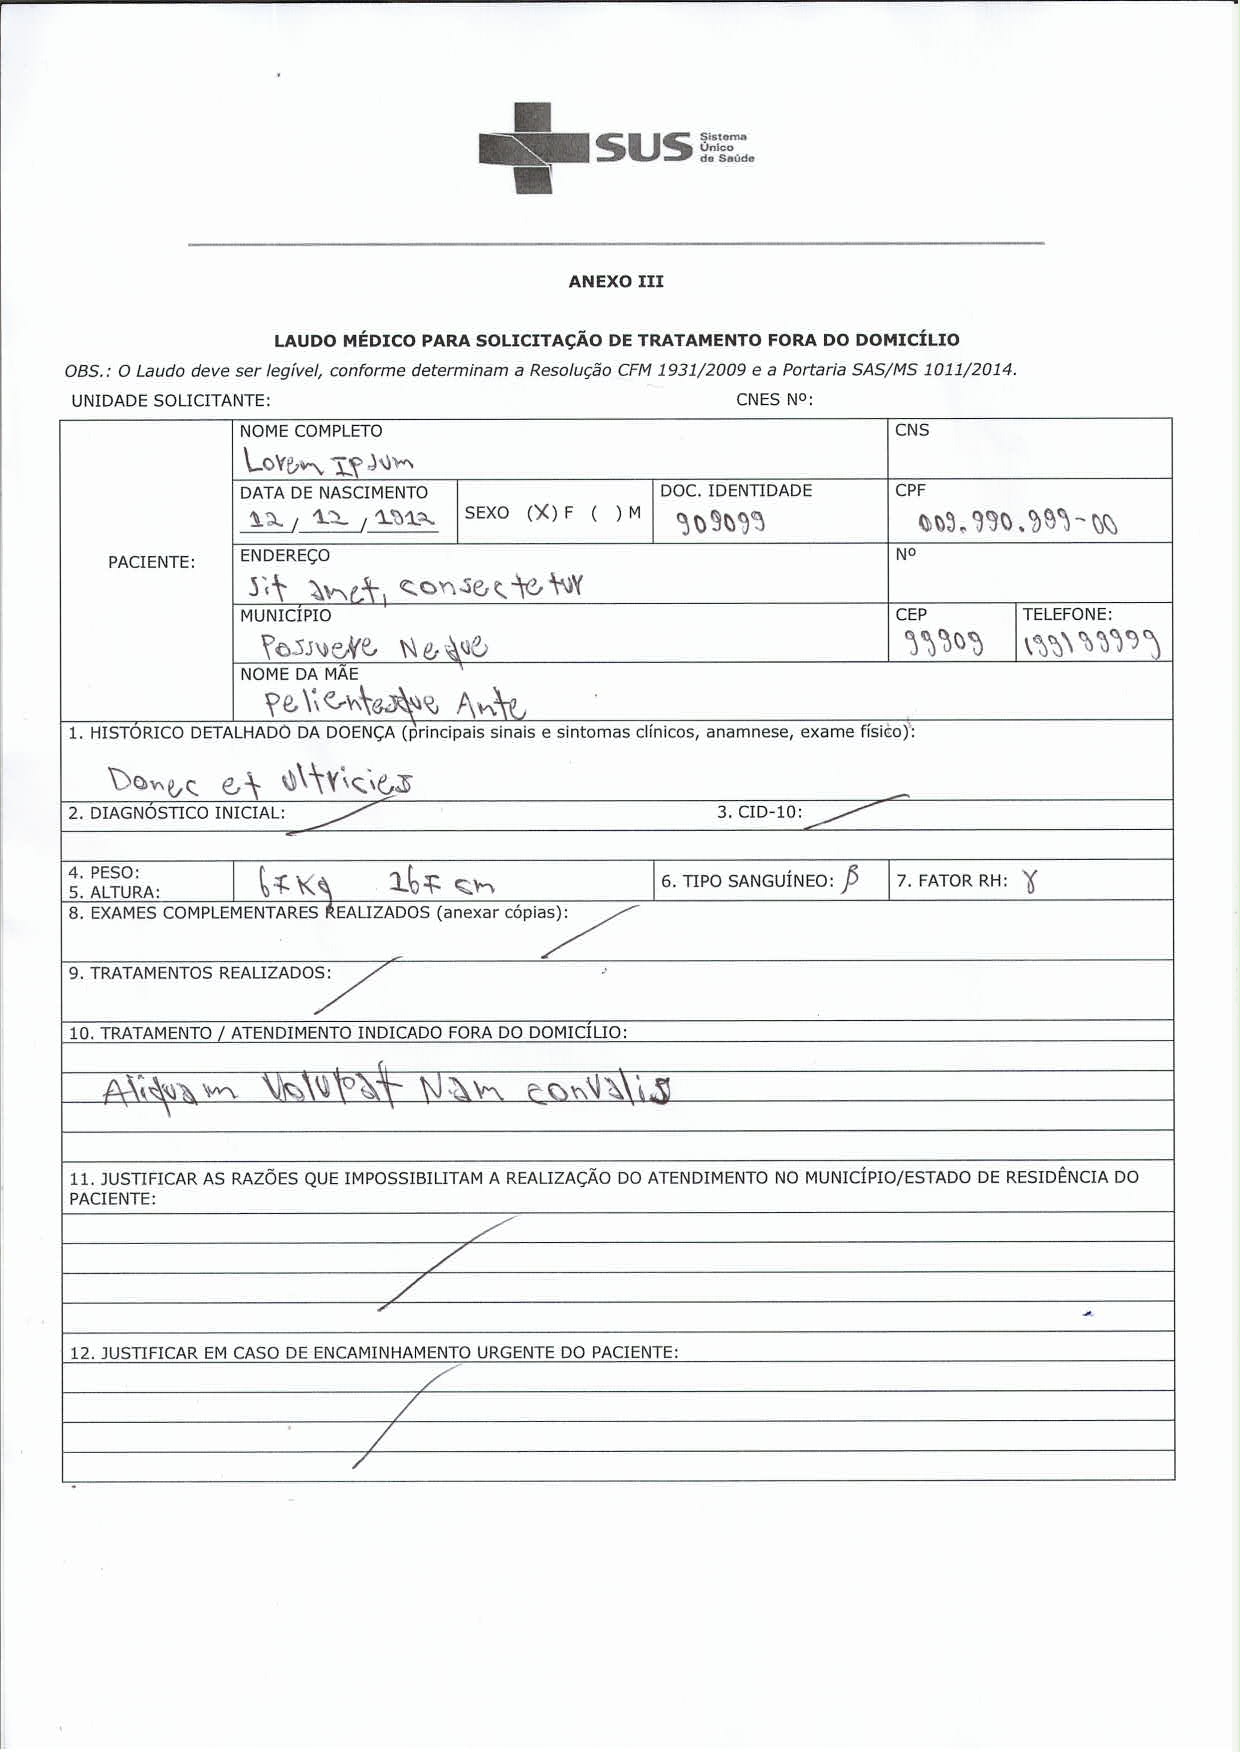 SUS Sistema
Único
de Saúde
ANEXO III
LAUDO MÉDICO PARA SOLICITAÇÃO DE TRATAMENTO FORA DO DOMICÍLIO
OBS.: O Laudo deve ser legível, conforme determinam a Resolução CFM 1931/2009 e a Portaria SAS/MS 1011/2014.
UNIDADE SOLICITANTE: CNES Nº:
NOME COMPLETO CNS
Lorem Ipsum
DATA DE NASCIMENTO SEXO (X) F ( ) M DOC. IDENTIDADE CPF
12 / 12 / 1912 909099 009.990.999-00
PACIENTE:
ENDEREÇO Nº
Sit amet, consectetur
MUNICÍPIO CEP TELEFONE:
Possuere Neque 99909 199199999
NOME DA MÃE
Pelientesque Ante
1. HISTÓRICO DETALHADO DA DOENÇA (principais sinais e sintomas clínicos, anamnese, exame físico):
Donec et ultricies
2. DIAGNÓSTICO INICIAL: 3. CID-10:
4. PESO:
5. ALTURA:
67Kg 167 cm
6. TIPO SANGUÍNEO: β 7. FATOR RH: γ
8. EXAMES COMPLEMENTARES REALIZADOS (anexar cópias):
9. TRATAMENTOS REALIZADOS:
10. TRATAMENTO / ATENDIMENTO INDICADO FORA DO DOMICÍLIO:
Aliquam Volutpat Nam convalis
11. JUSTIFICAR AS RAZÕES QUE IMPOSSIBILITAM A REALIZAÇÃO DO ATENDIMENTO NO MUNICÍPIO/ESTADO DE RESIDÊNCIA DO
PACIENTE:
12. JUSTIFICAR EM CASO DE ENCAMINHAMENTO URGENTE DO PACIENTE: